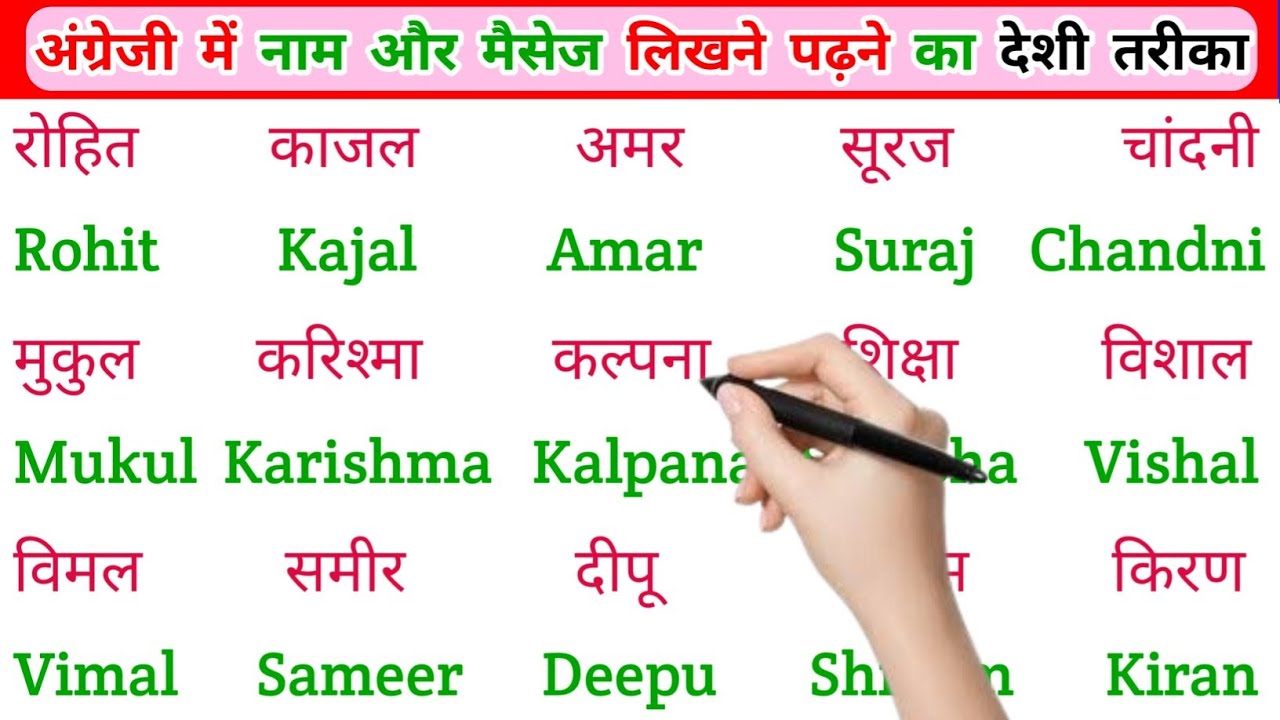 अंग्रेजी में नाम और मैसेज लिखने पढ़ने का देशी तरीका
रोहित काजल अमर सूरज चांदनी
Rohit Kajal Amar Suraj Chandni
मुकुल करिश्मा कल्पना शिक्षा विशाल
Mukul Karishma Kalpana Vishal
विमल समीर दीपू किरण
Vimal Sameer Deepu Kiran